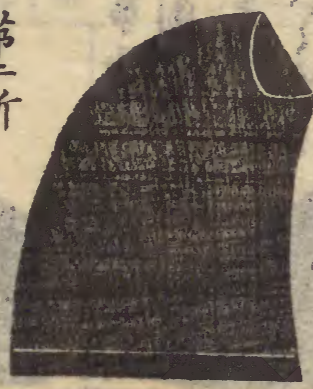 第二折